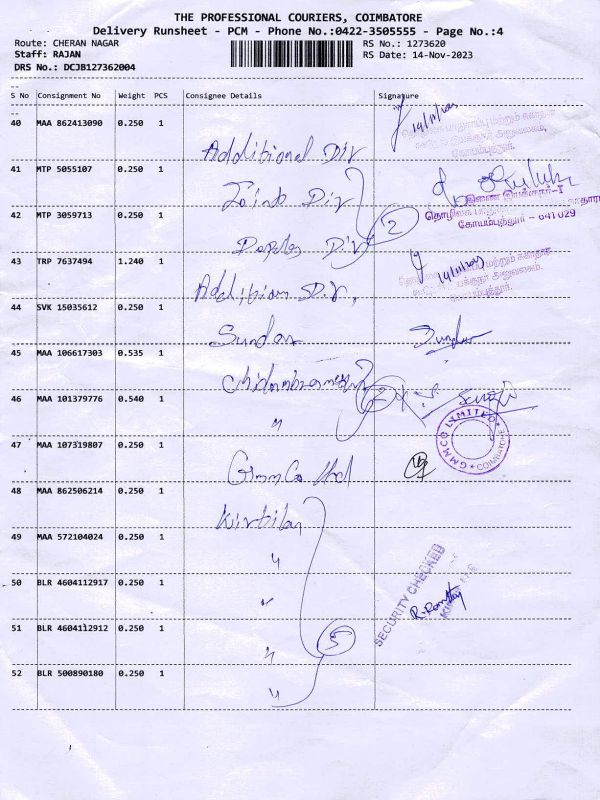 THE PROFESSIONAL COURIERS, COIMBATORE
Delivery Runsheet - PCM - Phone No.:0422-3505555 - Page No.:4
Route: CHERAN NAGAR
RS No.: 1273620
Staff: RAJAN
RS Date: 14-Nov-2023
DRS No.: DCJB127362004
S No Consignment No Weight PCS Consignee Details Signature
40 MAA 862413090 0.250 1 Additional Dir
41 MTP 5055107 0.250 1 Joint Dir
இணை இயக்குநர்-I
42 MTP 3059713 0.250 1 2
கோயம்புத்தூர் - 641029
43 TRP 7637494 1.240 1
44 SVK 15035612 0.250 1 Sundar Sundar
45 MAA 106617303 0.535 1
46 MAA 101379776 0.540 1 〃 2
GMMCO LYMITED COIMBATORE
47 MAA 107319807 0.250 1
48 MAA 862506214 0.250 1
49 MAA 572104024 0.250 1 〃
SECURITY CHECKED
50 BLR 4604112917 0.250 1 〃
51 BLR 4604112912 0.250 1 〃 5
52 BLR 500890180 0.250 1 〃